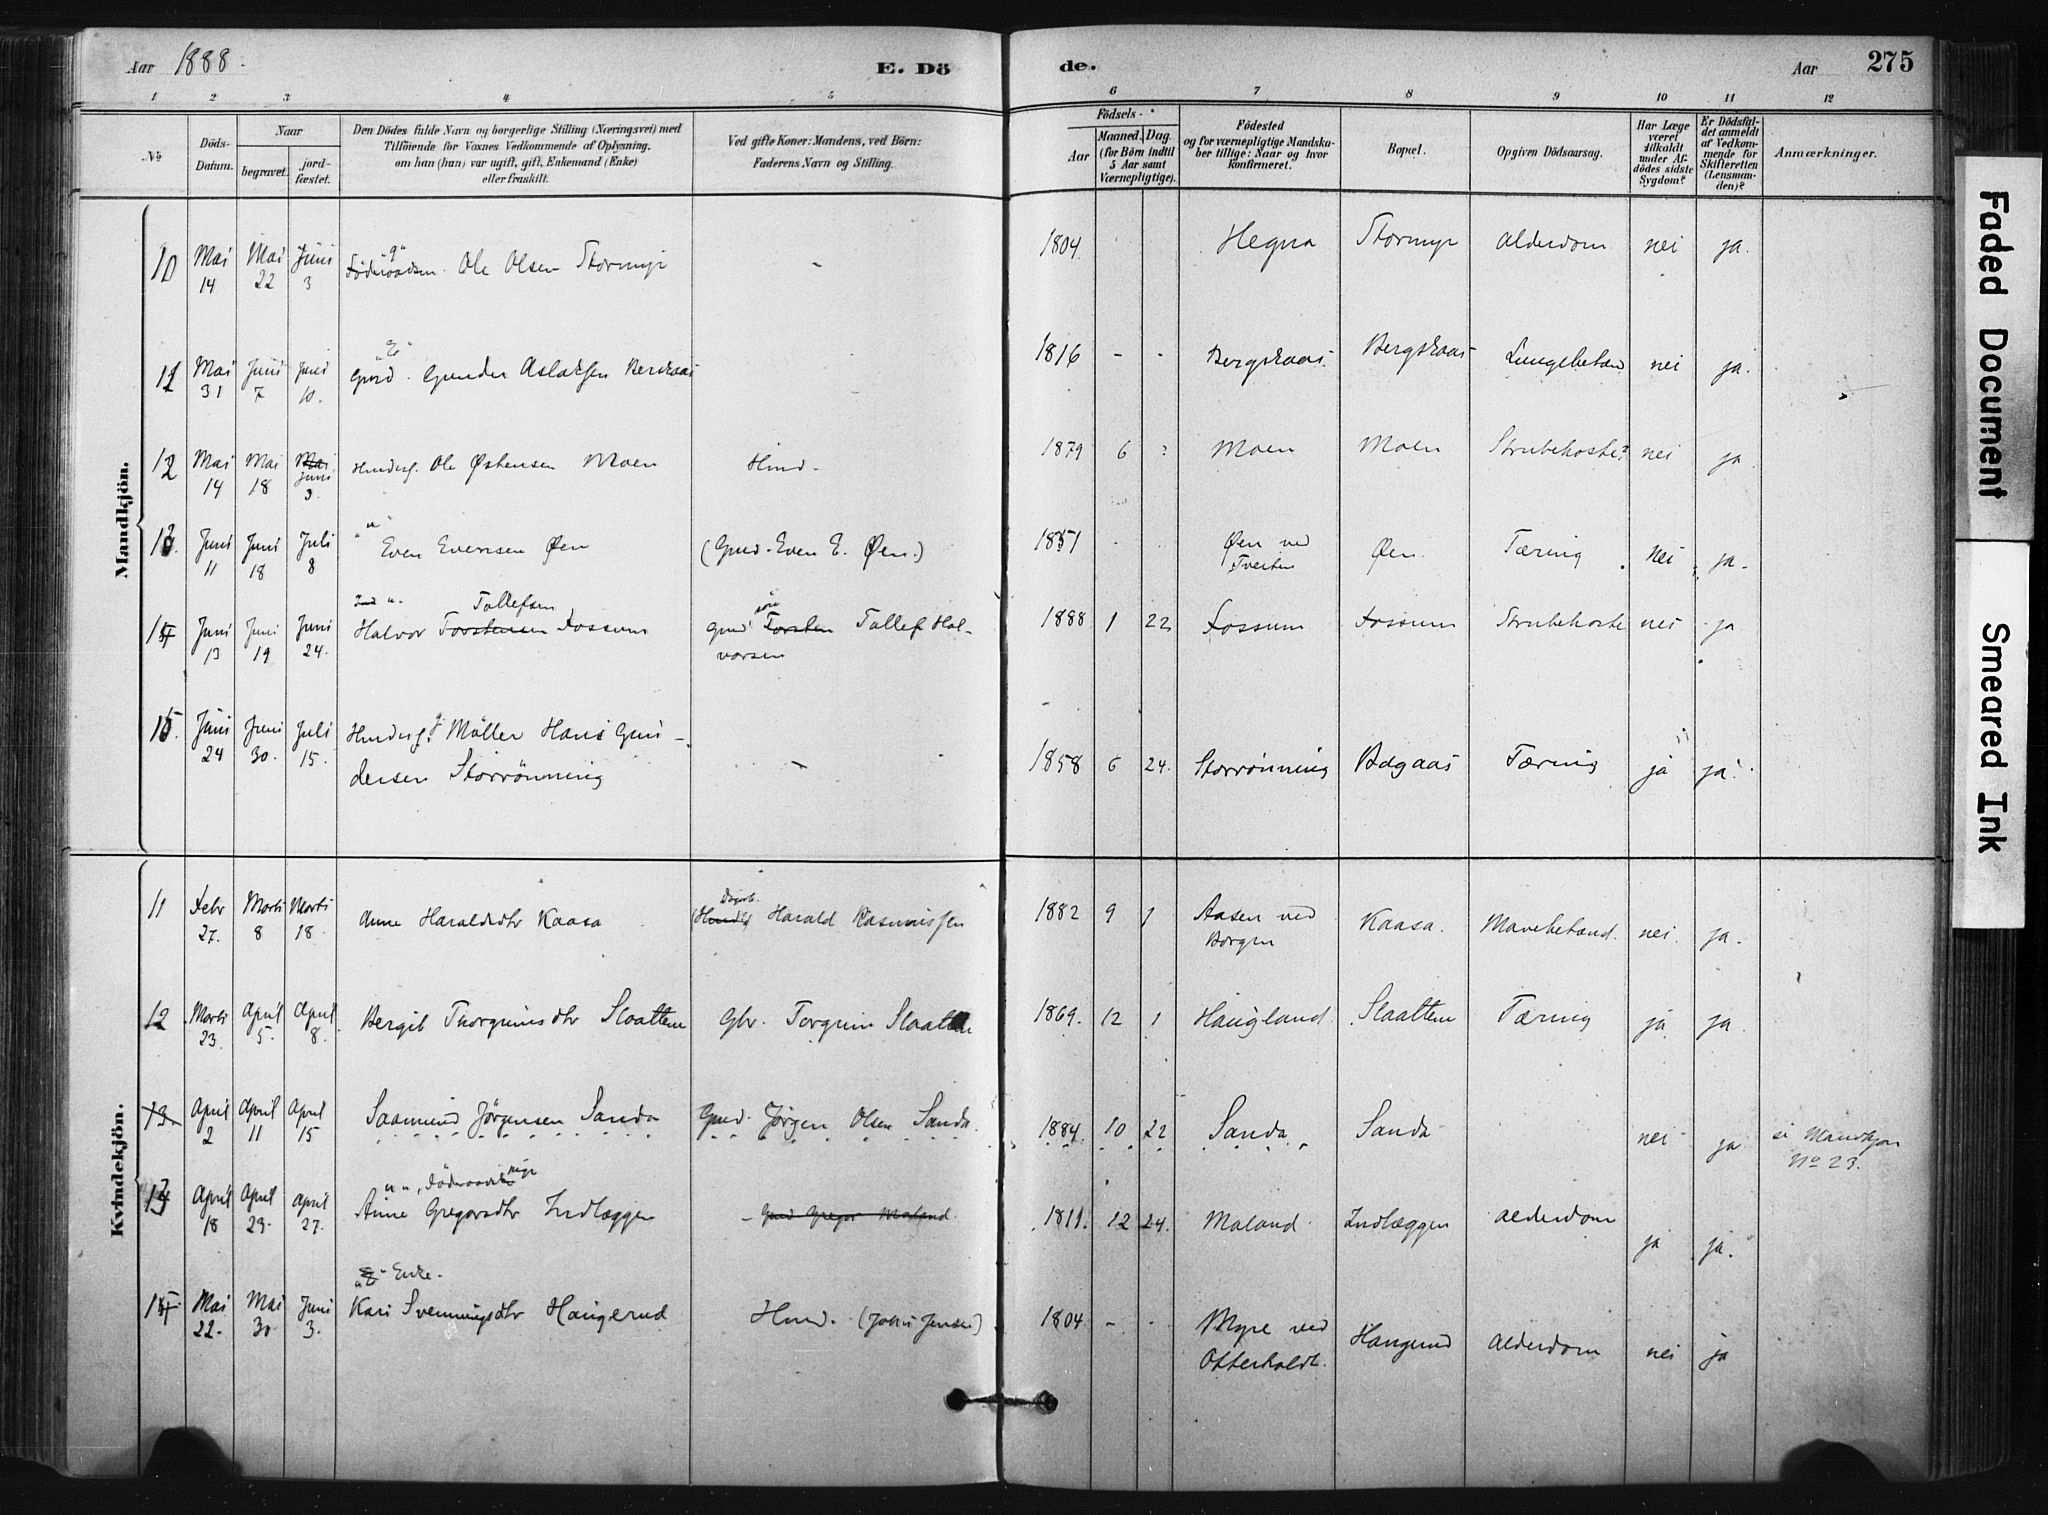 Aar 1888.
E. Dö
de.
Aar
275
1 2 3 4 5 6 7 8 9 10 11 12
No
Döds-
Datum.
Naar
begravet.
jord-
fæstet.
Den Dödes fulde Navn og borgerlige Stilling (Næringsvei) med
Tilföiende for Voxnes Vedkommende af Oplysning,
om han (hun) var ugift, gift, Enkemand (Enke)
eller fraskilt.
Ved gifte Koner: Mandens, ved Börn:
Faderens Navn og Stilling.
Födsels-
Aar
Maaned. Dag.
(for Börn indtil
5 Aar samt
Værnepligtige).
Födested
og for værnepligtige Mandska-
ber tillige: Naar og hvor
konfirmeret.
Bopæl.
Opgiven Dödsaarsag.
Har Læge
været
tilkaldt
under Af-
dödes sidste
Sygdom?
Er Dödsfal-
det anmeldt
af Vedkom-
mende for
Skifteretten
(Lensman-
den)?
Anmærkninger.
Mandkjön.
10 Mai 14 Mai 22 Juni 3 "g" Ole Olsen Stormyr - 1804 Hegna Stormyr Alderdom nei ja.
11 Mai 31 Juni 7 Juni 10. "E" Gmd. Gunder Aslaksen Berskaas 1816 - - Bergskaas. Bergskaas Lungebetæn nei ja.
12 Mai 14 Mai 18 Mai Juni 3. Ole Østensen Moen Hmd. 1879 6 ? Moen Moen Strubehoste? nei ja
13. Juni 11 Juni 18 Juli 8 "u" Even Evensen Øen (Gmd. Even E. Øen.) 1851 Øen ved Tveiten Øen. Tæring nei ja.
14 Juni 13 Juni 19 Juni 24. Halvor Torstensen Tollefsen Fossum Gmd Torsten Tollef Hal-
vorsen 1888 1 22 Fossum Fossum Strubehoste nei ja
15. Juni 24 Juni 30. Juli 15. Møller Hans Gun-
dersen Storrönning - 1858 6 24. Storrönning Bogaas Tæring ja ja.
Kvindekjön.
11 Febr 27. Marti 8 Marti 18. Anne Haraldsdtr Kaasa Harald Rasmussen 1882 9 1 Aasen ved Borgen Kaasa. Mavebetænd. nei. ja.
12 Marti 23. April 5. April 8. Bergit Thorgrimsdtr Slaatten Gbr. Torgrim Slaatten 1869. 12 1 Haugland. Slaatten Tæring ja ja.
13 April 2 April 11 April 15 Saamund Jörgensen Sanda Gmd. Jörgen Olsen Sanda. 1884. 10 22 Sanda Sanda nei ja se Mandkjøn
No 23.
13 April 18 April 23. April 27. Anne Gregorsdtr Indlæggen - Gmd Gregor Moland. 1811. 12 24. Moland. Indlæggen Alderdom ja ja.
14 Mai 22. Mai 30 Juni 3. Enke. Kari Svenningsdtr Haugerud Hmd. (Johs Jensen) 1804 - - Myre ved
Otterholdt. Haugerud Alderdom nei ja
Faded Document
Smeared Ink